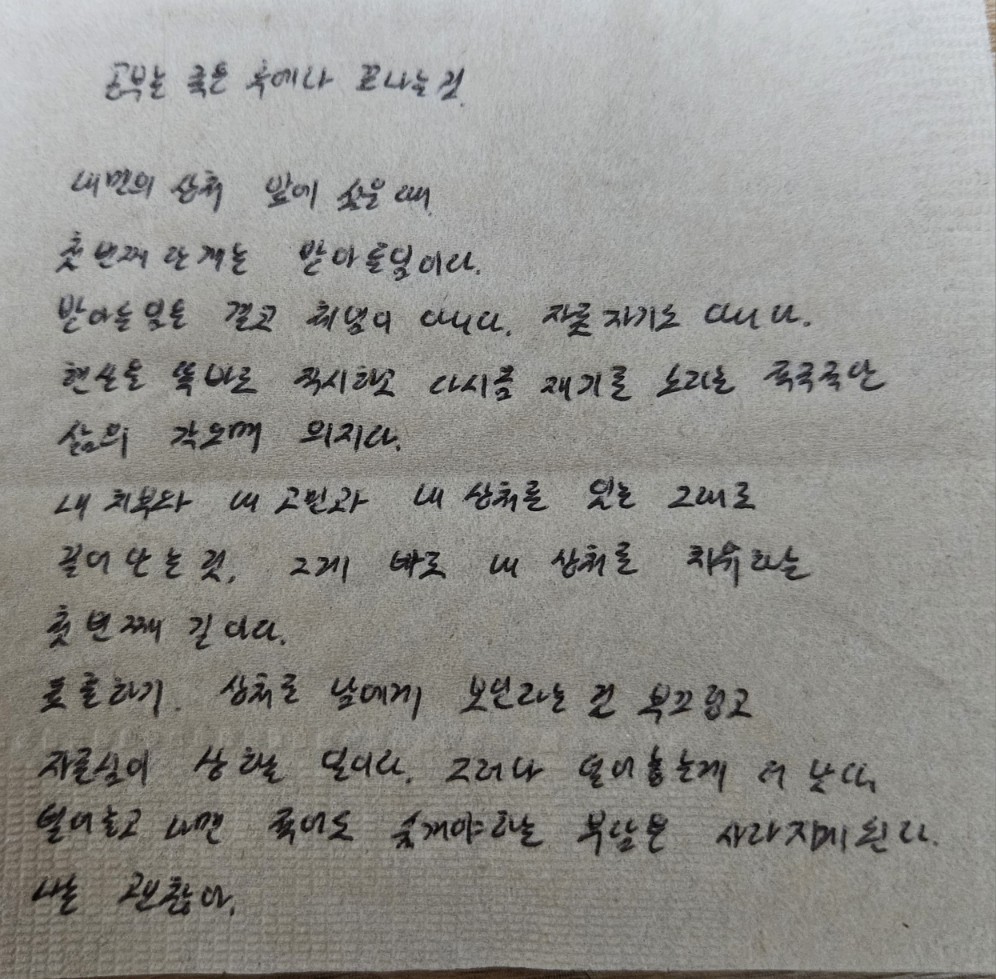 공부는 죽은 후에나 끝나는 것.
내면의 상처 앞에 섰을 때
첫 번째 단계는 받아들임이다.
받아들임은 결코 체념이 아니다. 자포자기도 아니다.
현실을 똑바로 직시하고 다시금 재기를 노리는
삶의 각오 의지다.
내 치부와 내 고민과 내 상처를 있는 그대로
끌어안는 것. 그게 바로 내 상처를 치유하는
첫 번째 길이다.
표출하기. 상처를 남에게 보인다는 건 부끄럽고
자존심이 상하는 일이다. 그러나 털어놓는게 더 낫다.
털어놓고 나면 죽어도 숨겨야 하는 부담은 사라지게 된다.
나는 괜찮아.